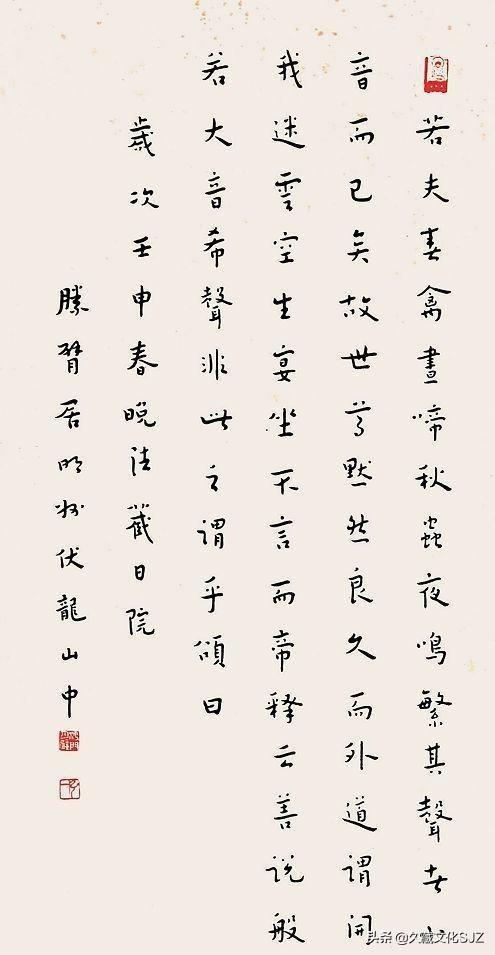 若夫春禽晝啼秋蟲夜鳴繁其聲者八
音而已矣故世尊默然良久而外道謂開
我迷雲空生宴坐无言而帝釋云善說般
若大音希聲非此之謂乎頌曰
歲次壬申春晚法藏日院
勝臂居明州伏龍山中
头条 @久藏文化SJZ